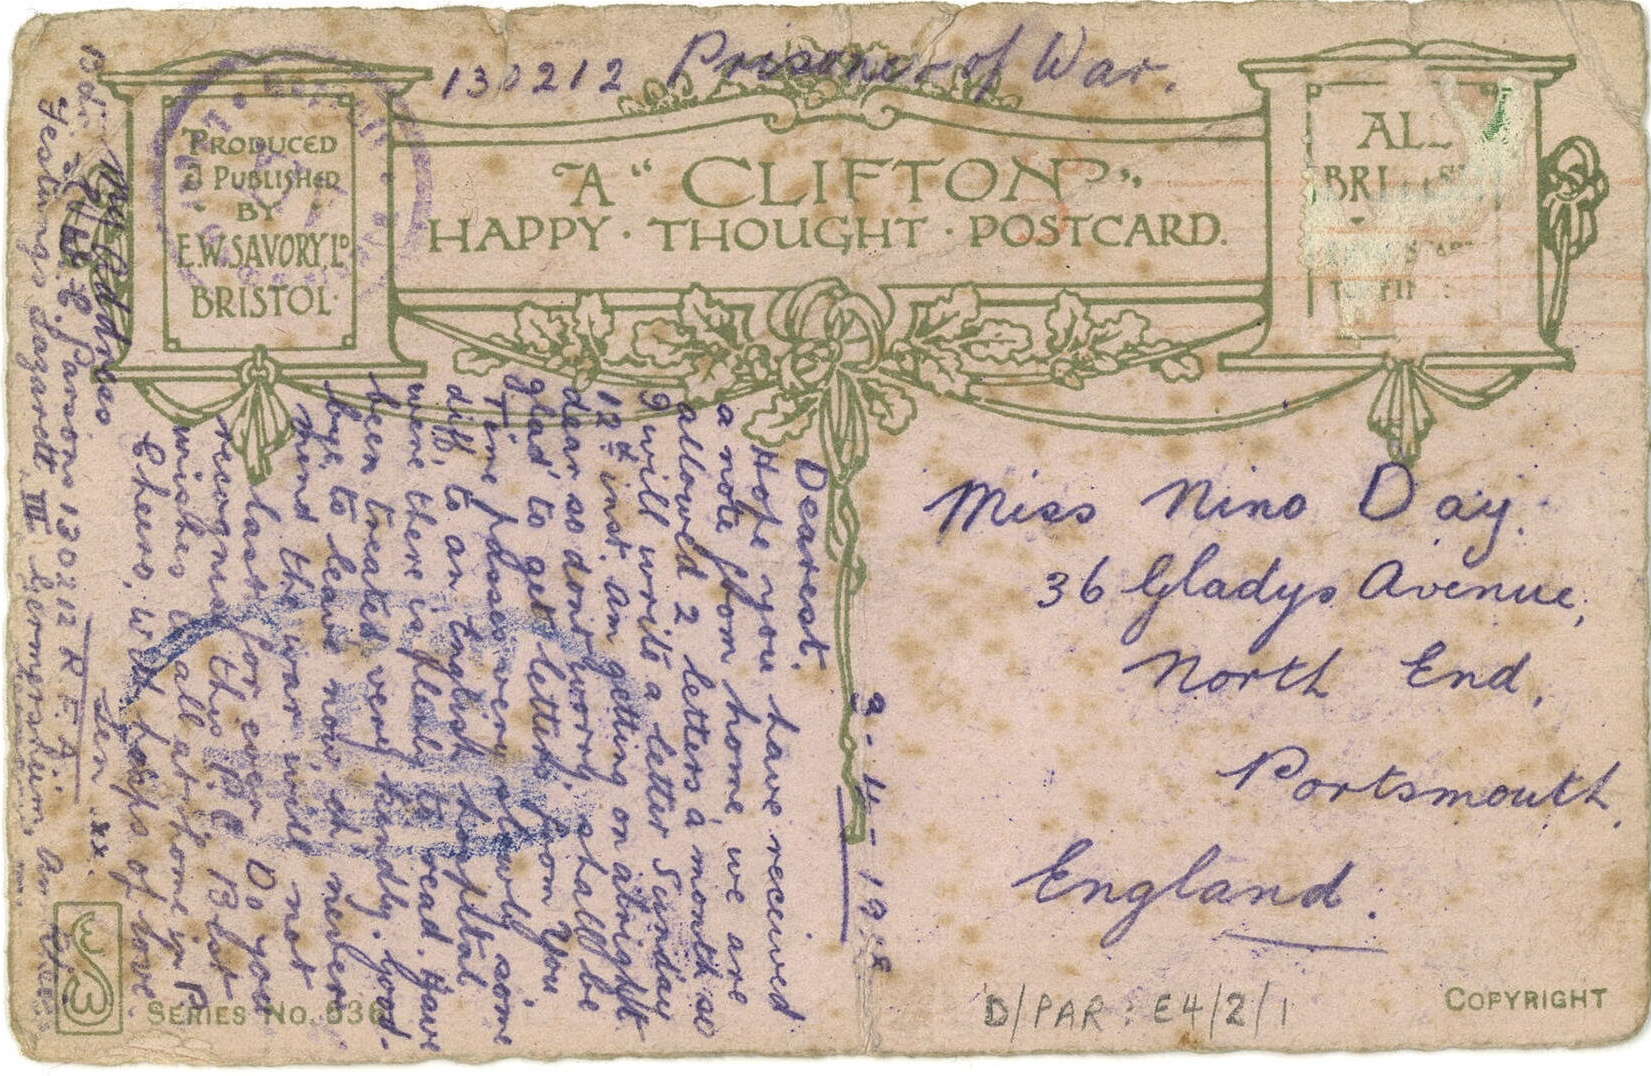 130212 Prisoner of War.
PRODUCED
& PUBLISHED
BY
E.W. SAVORY, Lᴰ
BRISTOL
A "CLIFTON"
HAPPY · THOUGHT · POSTCARD.
ALL
BRI
Miss Nino Day.
36 Gladys Avenue,
North End,
Portsmouth.
England.
9-4-1918
Dearest.
Hope you have received
a note from home, we are
allowed 2 letters a month so
I will write a letter Sunday
12th inst. Am getting on alright
dear so dont worry, shall be
glad to get letters from you
Time passes very slowly some
diff. to an English hospital
were there is plenty to read. Have
been treated very kindly. Good-
bye to leave now, oh never
mind the war will not
last for ever Do you
recognise this P.C. Blot
wishes to all at home in P
Cheero, with heaps of love.
Len xx.
My address
Bdr. L. E. Parsons 130212 R.F.A.
Festungs Lazarett III Germersheim Am
SERIES No. 536
COPYRIGHT
D/PAR: E4/2/1